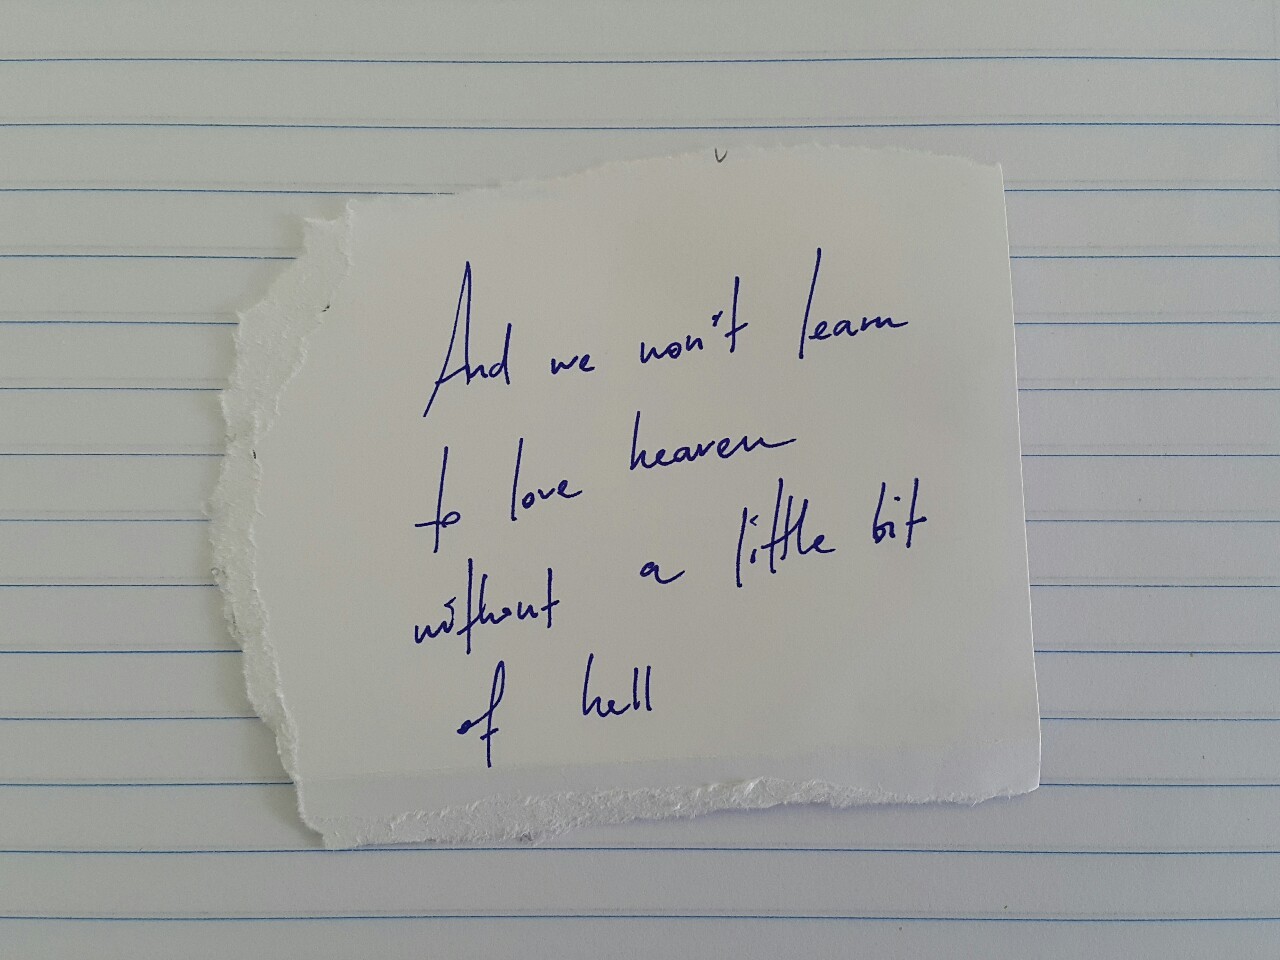 And we won't learn
to love heaven
without a little bit
of hell